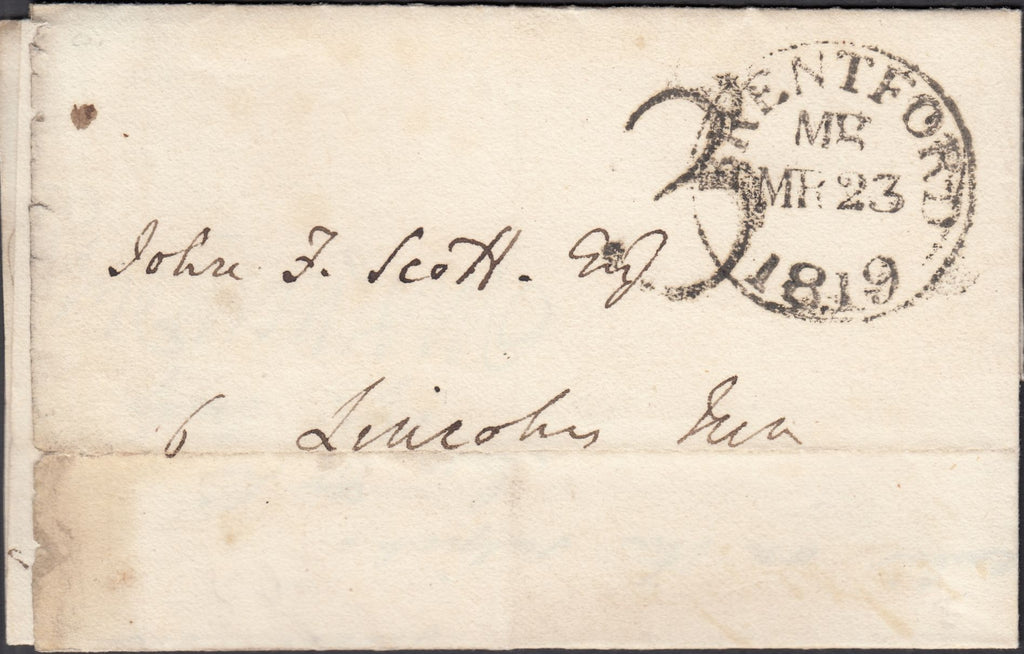 BRENTFORD
MR
MR 23
1819
3
John F. Scott. Esq
6 Lincolns Inn